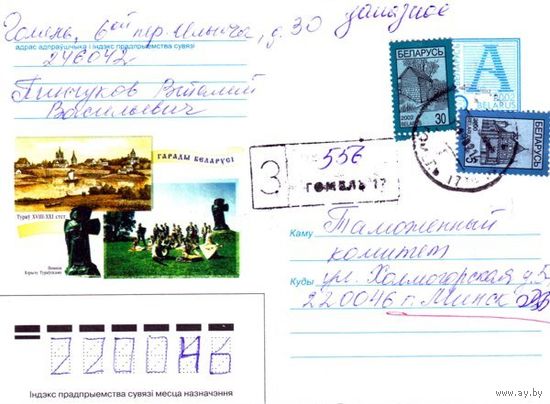 Гомель, 6ой пер. Ильича, д. 30
заказное
адрас адпраўшчыка і індэкс прадпрыемства сувязі
246042
Пинчуков Виталий
Васильевич
ГАРАДЫ БЕЛАРУСІ
Тураў XVIII-XXI стст.
З
556
ГОМЕЛЬ 17
БЕЛАРУСЬ
2002
30
БЕЛАРУСЬ
A
2002
BELARUS
Каму
Таможенный
комитет
Куды
ул. Холмогорская
220046 г. Минск
220046
Індэкс прадпрыемства сувязі месца назначэння
www.ay.by